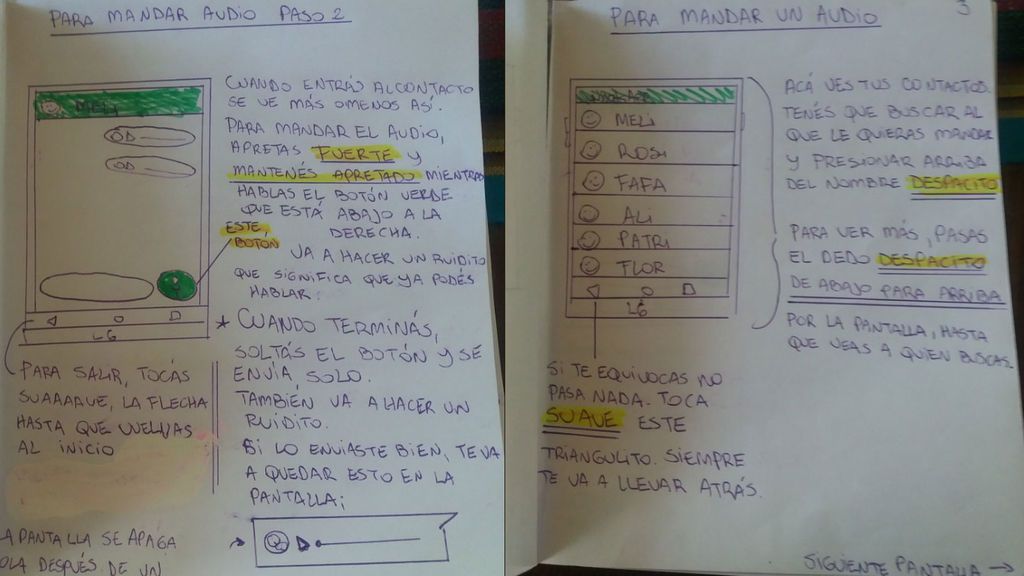 PARA MANDAR AUDIO PASO 2
MELI
CUANDO ENTRÁS AL CONTACTO
SE VE MÁS O MENOS ASÍ.
PARA MANDAR EL AUDIO,
APRETAS FUERTE Y
MANTENÉS APRETADO MIENTRAS
HABLAS EL BOTÓN VERDE
QUE ESTÁ ABAJO A LA
DERECHA.
ESTE
BOTON
VA A HACER UN RUIDITO
QUE SIGNIFICA QUE YA PODÉS
HABLAR.
LG
* CUANDO TERMINÁS,
SOLTÁS EL BOTÓN Y SE
ENVIA, SOLO.
TAMBIÉN VA A HACER UN
RUIDITO.
SI LO ENVIASTE BIEN, TE VA
A QUEDAR ESTO EN LA
PANTALLA:
PARA SALIR, TOCÁS
SUAAAAVE, LA FLECHA
HASTA QUE VUELVAS
AL INICIO
LA PANTALLA SE APAGA
DESPUÉS DE UN
PARA MANDAR UN AUDIO
3
MELI
ROSI
FAFA
ALI
PATRI
FLOR
LG
ACÁ VES TUS CONTACTOS.
TENÉS QUE BUSCAR AL
QUE LE QUIERAS MANDAR
Y PRESIONAR ARRIBA
DEL NOMBRE DESPACITO
PARA VER MÁS, PASAS
EL DEDO DESPACITO
DE ABAJO PARA ARRIBA
POR LA PANTALLA, HASTA
QUE VEAS A QUIEN BUSCAS.
SI TE EQUIVOCAS NO
PASA NADA. TOCA
SUAVE ESTE
TRIANGULITO. SIEMPRE
TE VA A LLEVAR ATRÁS.
SIGUIENTE PANTALLA →